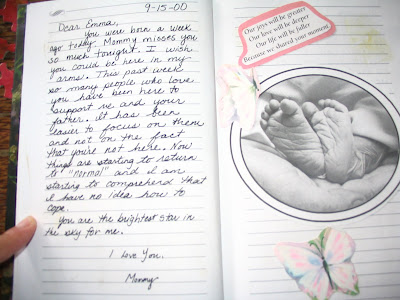 9-15-00
Dear Emma,
You were born a week
ago today. Mommy misses you
so much tonight. I wish
you could be here in my
arms. This past week
so many people who love
you have been here to
support me and your
father. It has been
easier to focus on them
and not on the fact
that you're not here. Now
things are starting to return
to "normal" and I am
starting to comprehend that
I have no idea how to
cope.
You are the brightest star in
the sky for me.
I Love You,
Mommy
Our joys will be greater
Our love will be deeper
Our life will be fuller
Because we shared your moment